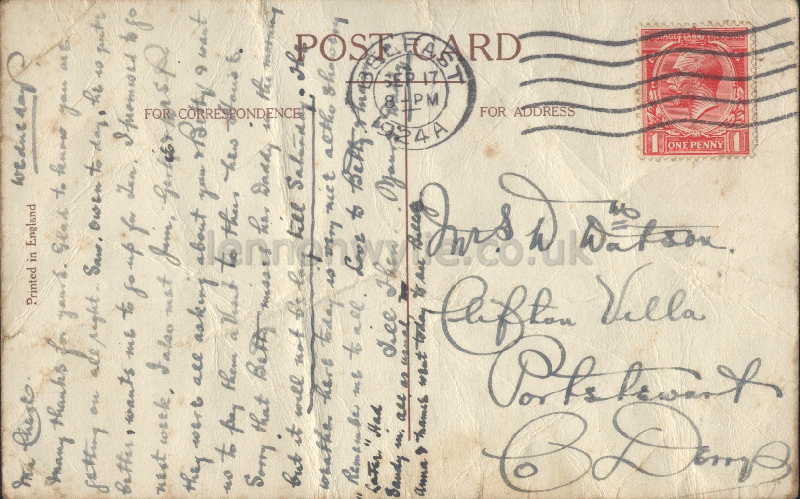 POST CARD
FOR CORRESPONDENCE
FOR ADDRESS
BELFAST
SEP 17
8 PM
1924 A
POSTAGE
ONE PENNY
1
1
Printed in England
Wednesday
Many thanks for yours. Glad to know you are
getting on all right. Saw Owen to day, he is quite
better, wants me to go up for Tea. I promised to go
next week. I also met Jim,
they were all asking about you & Betty & want
us to pay them a visit to their new house.
Sorry that Betty misses her Daddy in the morning
but it will not be long till Saturday. The
weather here today is very nice altho showery
Remember me to all. Love to Betty &
"Later" Had
Sandy in, all as usual
Anna & Mamie went today to see Billy
Mrs. W Watson.
Clifton Villa
Portstewart
Co Derry